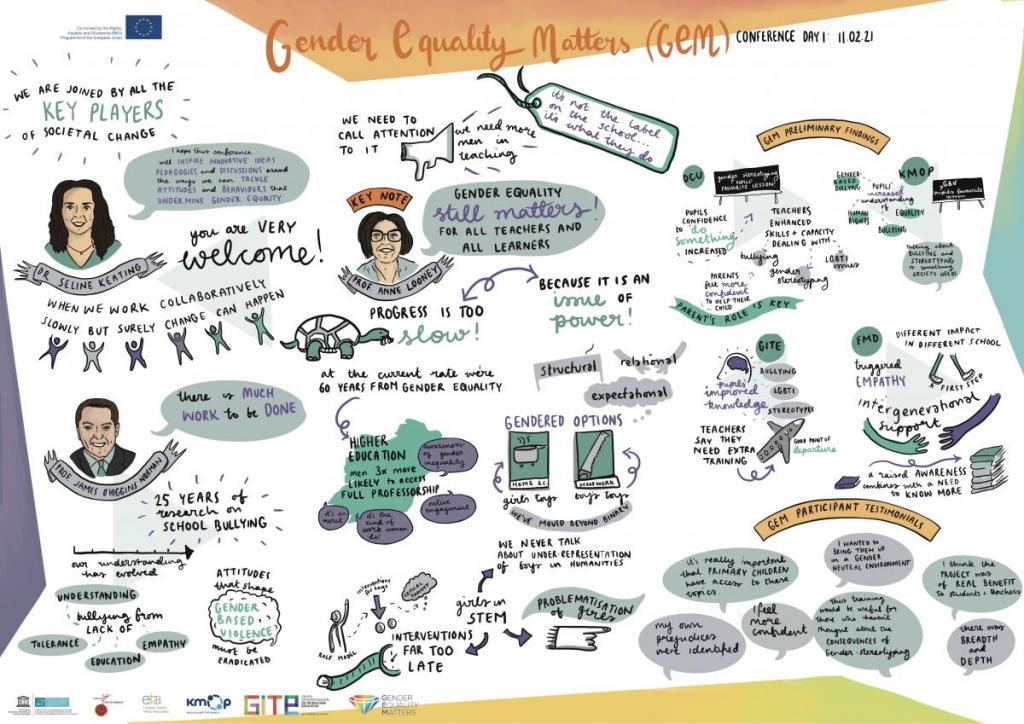 Co-funded by the Rights,
Equality and Citizenship (REC)
Programme of the European Union
Gender Equality Matters (GEM)
CONFERENCE DAY 1: 11.02.21
WE ARE JOINED BY ALL THE
KEY PLAYERS
OF SOCIETAL CHANGE
I hope this conference
will INSPIRE INNOVATIVE IDEAS
PEDAGOGIES and DISCUSSIONS around
the ways we can TACKLE
ATTITUDES and BEHAVIOURS that
UNDERMINE GENDER EQUALITY
DR SELINE KEATING
you are VERY
welcome!
WHEN WE WORK COLLABORATIVELY
SLOWLY BUT SURELY CHANGE CAN HAPPEN
there is MUCH
WORK to be DONE
PROF. JAMES O'HIGGINS NORMAN
25 YEARS of
research on
SCHOOL BULLYING
our understanding
has evolved
UNDERSTANDING
bullying from
LACK OF
TOLERANCE
EMPATHY
EDUCATION
ATTITUDES
that shape
GENDER
BASED
VIOLENCE
must be
ERADICATED
WE NEED TO
CALL ATTENTION
TO IT
we need more
men in
teaching
it's not the label
on the school...
it's what they do
KEY NOTE
PROF. ANNE LOONEY
GENDER EQUALITY
still matters!
FOR ALL TEACHERS AND
ALL LEARNERS
PROGRESS IS TOO
slow!
BECAUSE IT IS AN
issue OF
power!
at the current rate we're
60 YEARS FROM GENDER EQUALITY
HIGHER
EDUCATION
men 3x more
likely to access
FULL PROFESSORSHIP
awareness
of gender
inequality
active
engagement
it's on
merit
it's the
kind of
work women
do!
structural
relational
expectational
GENDERED OPTIONS
HOME EC.
WOODWORK
girls toys
boys toys
WE'VE MOVED BEYOND BINARY
WE NEVER TALK
ABOUT UNDER-REPRESENTATION
of BOYS in HUMANITIES
girls in
STEM
PROBLEMATISATION
of girls
interventions
for boys
ROLE MODEL
INTERVENTIONS
FAR TOO
LATE
GEM PRELIMINARY FINDINGS
DCU
gender stereotyping
PUPILS'
FAVOURITE LESSON!
PUPILS
CONFIDENCE
to do
something
INCREASED
TEACHERS
ENHANCED
SKILLS + CAPACITY
DEALING WITH
bullying
LGBTI
issues
gender
stereotyping
PARENTS
felt more
confident
TO HELP THEIR
CHILD
PARENT'S ROLE IS KEY
KMOP
GENDER-
BASED
BULLYING
PUPILS'
increased
understanding
of
HUMAN
RIGHTS
EQUALITY
BULLYING
GBV
pupils favourite
lesson
talking about
BULLYING and
STEREOTYPING
is something
SOCIETY NEEDS
GITE
pupils'
improved
knowledge
BULLYING
LGBTI
STEREOTYPES
TEACHERS
SAY THEY
NEED EXTRA
TRAINING
GOOD POINT OF
departure
FMD
triggered
EMPATHY
DIFFERENT IMPACT
IN DIFFERENT SCHOOL
A FIRST STEP
intergenerational
support
a raised AWARENESS
combines with a NEED
TO KNOW MORE
GEM PARTICIPANT TESTIMONIALS
it's really important
that PRIMARY CHILDREN
have access to these
topics.
I WANTED TO
BRING THEM UP
IN A GENDER
NEUTRAL ENVIRONMENT
I think the
PROJECT was
of REAL BENEFIT
to students + teachers
my own
prejudices
were identified
I feel
more
confident
This training
would be useful for
those who haven't
thought about the
CONSEQUENCES of
Gender-stereotyping
there was
BREADTH
and
DEPTH
KMOP
GITE
GENDER
EQUALITY
MATTERS